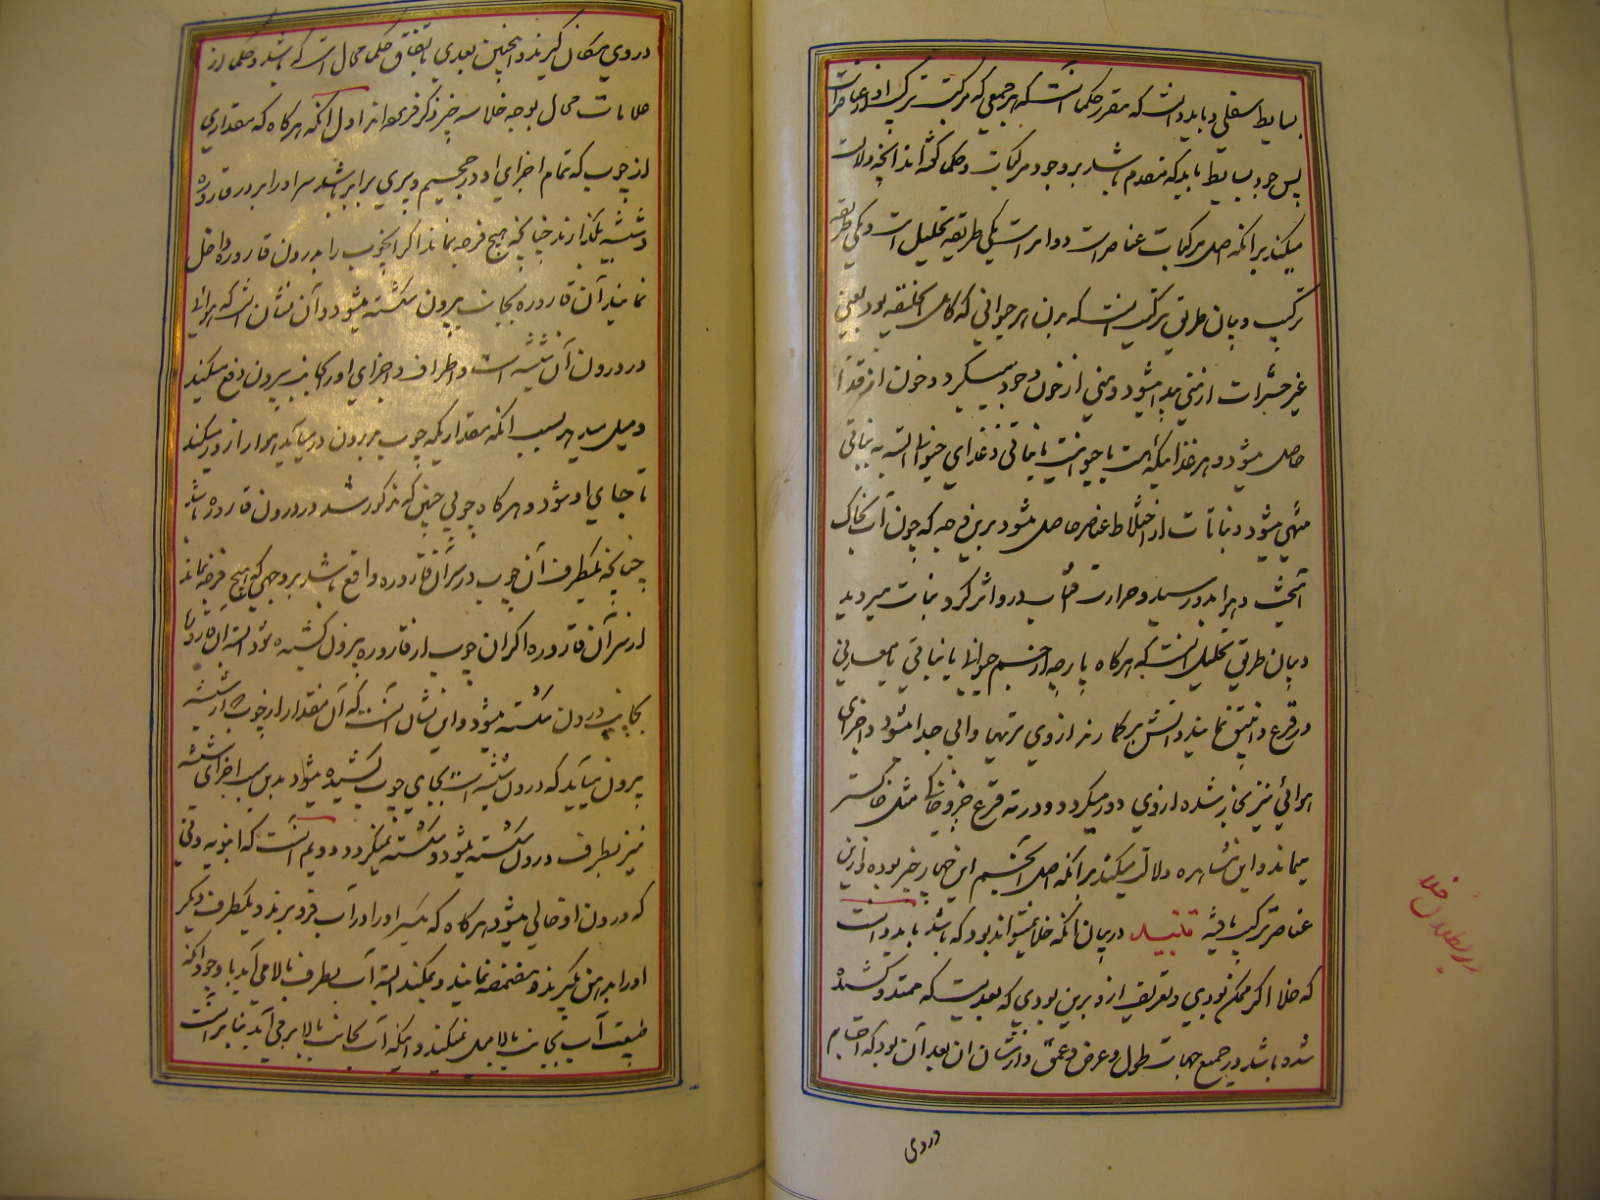 بسایط سفلی و باید دانست که مقرر حکما آنست که هر جمعی که مرکبست ترکیب او از عناصر است
پس وجود بسایط باید که متقدم باشد بر وجود مرکبات و حکما گفته‌اند آنچه دلالت
میکند بر آنکه اصل مرکبات عناصر است دو امر است یکی طریقه تحلیل است و یکی طریقه
ترکیب و بیان طریق ترکیب اینست که بدن هر حیوانی که کامل الخلقه بود یعنی
غیر حشرات از منی پیدا میشود و منی از خون وجود میگیرد و خون از غذا
حاصل میشود و هر غذا میکه هست یا حیوانیست یا نباتی و غذای حیوانی البته به نباتی
منتهی میشود و نباتات از اختلاط عناصر حاصل میشود برین وجه که چون آب بخاک
آمیخت و هوا بدو رسید و حرارت آفتاب درو اثر کرد نبات میروید
و بیان طریق تحلیل اینست که هرگاه پارچه از جسم حیوانی یا نباتی یا معدنی
در قرع و انبیق نمایند و آتش برگمارند از وی تریها و آبی جدا میشود و اجزای
هوائی نیز بخار شده از وی دور میگردد و در ته قرع جزو خاکی مثل خاکستر
میماند و این مشاهده دلالت میکند بر آنکه اصل آن جسم این چهار چیز بوده و ازین
عناصر ترکیب یافته تنبیه در بیان آنکه خلا نمیتواند بود که باشد باید دانست
که خلا اگر ممکن بودی و تعریف او برین بودی که بعدیست که ممتد و کشیده
شده باشد در جمیع جهات طول و عرض و عمق و از شان آن بعد آن بود که اجسام
در وی
در بطلان خلا
در وی مکان گیرند و اینچنین بعدی باتفاق حکما محال است که باشد و حکما از
علامات محال بوجه خلا سه چیز ذکر فرموده‌اند اول آنکه هرگاه که مقداری
از چوب که تمام اجزای او در حجم و پری برابر باشد سر او را در سر قاروره
شیشه بگذارند چنانکه هیچ فرجه نماند اگر آنچوب را بدرون قاروره داخل
نمایند آن قاروره بجانب بیرون شکسته میشود و آن نشان آنست که هوائی
در درون آن شیشه است و اطراف و اجزای او را بجانب بیرون دفع میکند
و میل میدهد بسبب آنکه مقداریکه چوب بدرون در میآید هوا را از و دور میکند
تا جای او شود و هرگاه چوبی چنین که مذکور شد در درون قاروره باشد
چنانچه یکطرف آن چوب در سر آن قاروره واقع باشد بر وجهی که هیچ فرجه نماند
از سر آن قاروره اگر آن چوب از قاروره بیرون کشیده شود البته آن قاروره
بجانب درون شکسته میشود و این نشان آنست که آن مقدار از چوب که از شیشه
بیرون میآید که در درون شیشه است بجای چوب کشیده میشود بدین سبب اجزای شیشه
نیز بطرف درون شکسته میشود و شکسته میگردد دویم آنست که انبوبه ونی
که درون او خالی میشود هرگاه که یکسر او را در آب فرو برند و یکطرف دیگر
او را بدهن بگیرند و مضمضه نمایند و بمکند البته آب بطرف بالا می آید با وجود آنکه
طبیعت آب بجانب بالا میل نمیکند و اینکه آب بجانب بالا بر می آید بنابر آنست